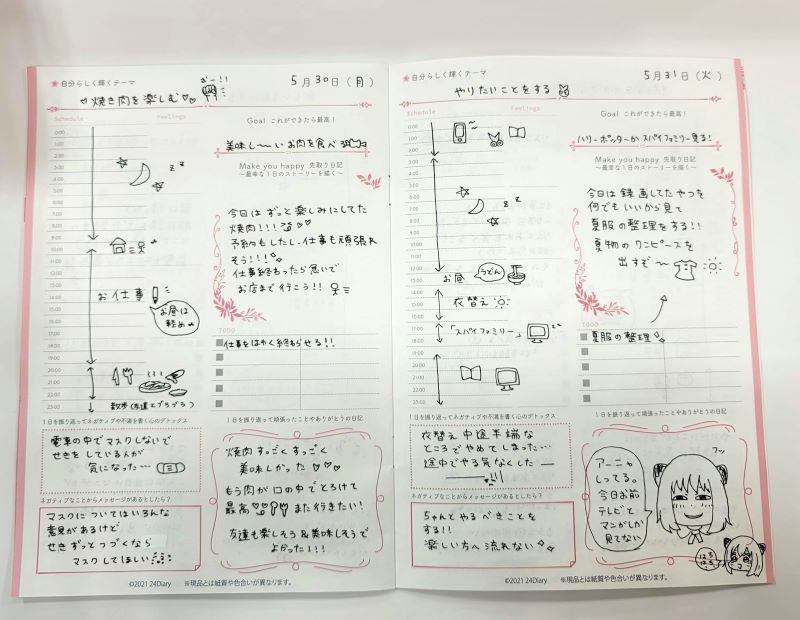 自分らしく輝くテーマ
5月30日(月)
♡焼き肉を楽しむ♡♡
おー!!
Schedule
Feelings
0:00
1:00
2:00
3:00
4:00
5:00
6:00
7:00
8:00
9:00
10:00
11:00
12:00
13:00
14:00
15:00
16:00
17:00
18:00
19:00
20:00
21:00
22:00
23:00
z z
お仕事
お昼は
軽め
散歩(友達とブラブラ)
Goal これができたら最高!
美味し〜〜いお肉を食べる
Make you happy 先取り日記
〜最幸な1日のストーリーを描く〜
今日はずっと楽しみにしてた
焼肉!!!
予約もしたし、仕事も頑張れ
そう!!!
仕事終わったら急いで
お店まで行こう!!
TODO
仕事をはやく終わらせる!!
1日を振り返ってネガティブや不満を書く心のデトックス
電車の中でマスクしないで
せきをしている人が
気になった…
ネガティブなことからメッセージがあるとしたら?
マスクについてはいろんな
意見があるけど
せきずっとつづくなら
マスクしてほしい
1日を振り返って頑張ったことやありがとうの日記
焼肉すごくすっごく
美味しかった♡♡♡
もう肉が口の中でとろけて
最高♡♡ また行きたい!
友達も楽しそう&美味しそうで
よかった!!!
©2021 24Diary ※現品とは紙質や色合いが異なります。
自分らしく輝くテーマ
5月31日(火)
やりたいことをする
Schedule
Feelings
0:00
1:00
2:00
3:00
4:00
5:00
6:00
7:00
8:00
9:00
10:00
11:00
12:00
13:00
14:00
15:00
16:00
17:00
18:00
19:00
20:00
21:00
22:00
23:00
z z
お昼
うどん
衣替え
「スパイファミリー」
Goal これができたら最高!
ハリーポッターかスパイファミリー見る!
Make you happy 先取り日記
〜最幸な1日のストーリーを描く〜
今日は録画してたやつを
何でもいいから見て
夏服の整理をする!!
夏物のワンピースを
出すぞ〜
TODO
夏服の整理
1日を振り返ってネガティブや不満を書く心のデトックス
衣替え中途半端な
ところでやめてしまった…
途中でやる気なくした
ネガティブなことからメッセージがあるとしたら?
ちゃんとやるべきことを
する!!
楽しい方へ流れない
1日を振り返って頑張ったことやありがとうの日記
フッ
アーニャ
しってる。
今日お前
テレビと
マンガしか
見てない
©2021 24Diary ※現品とは紙質や色合いが異なります。